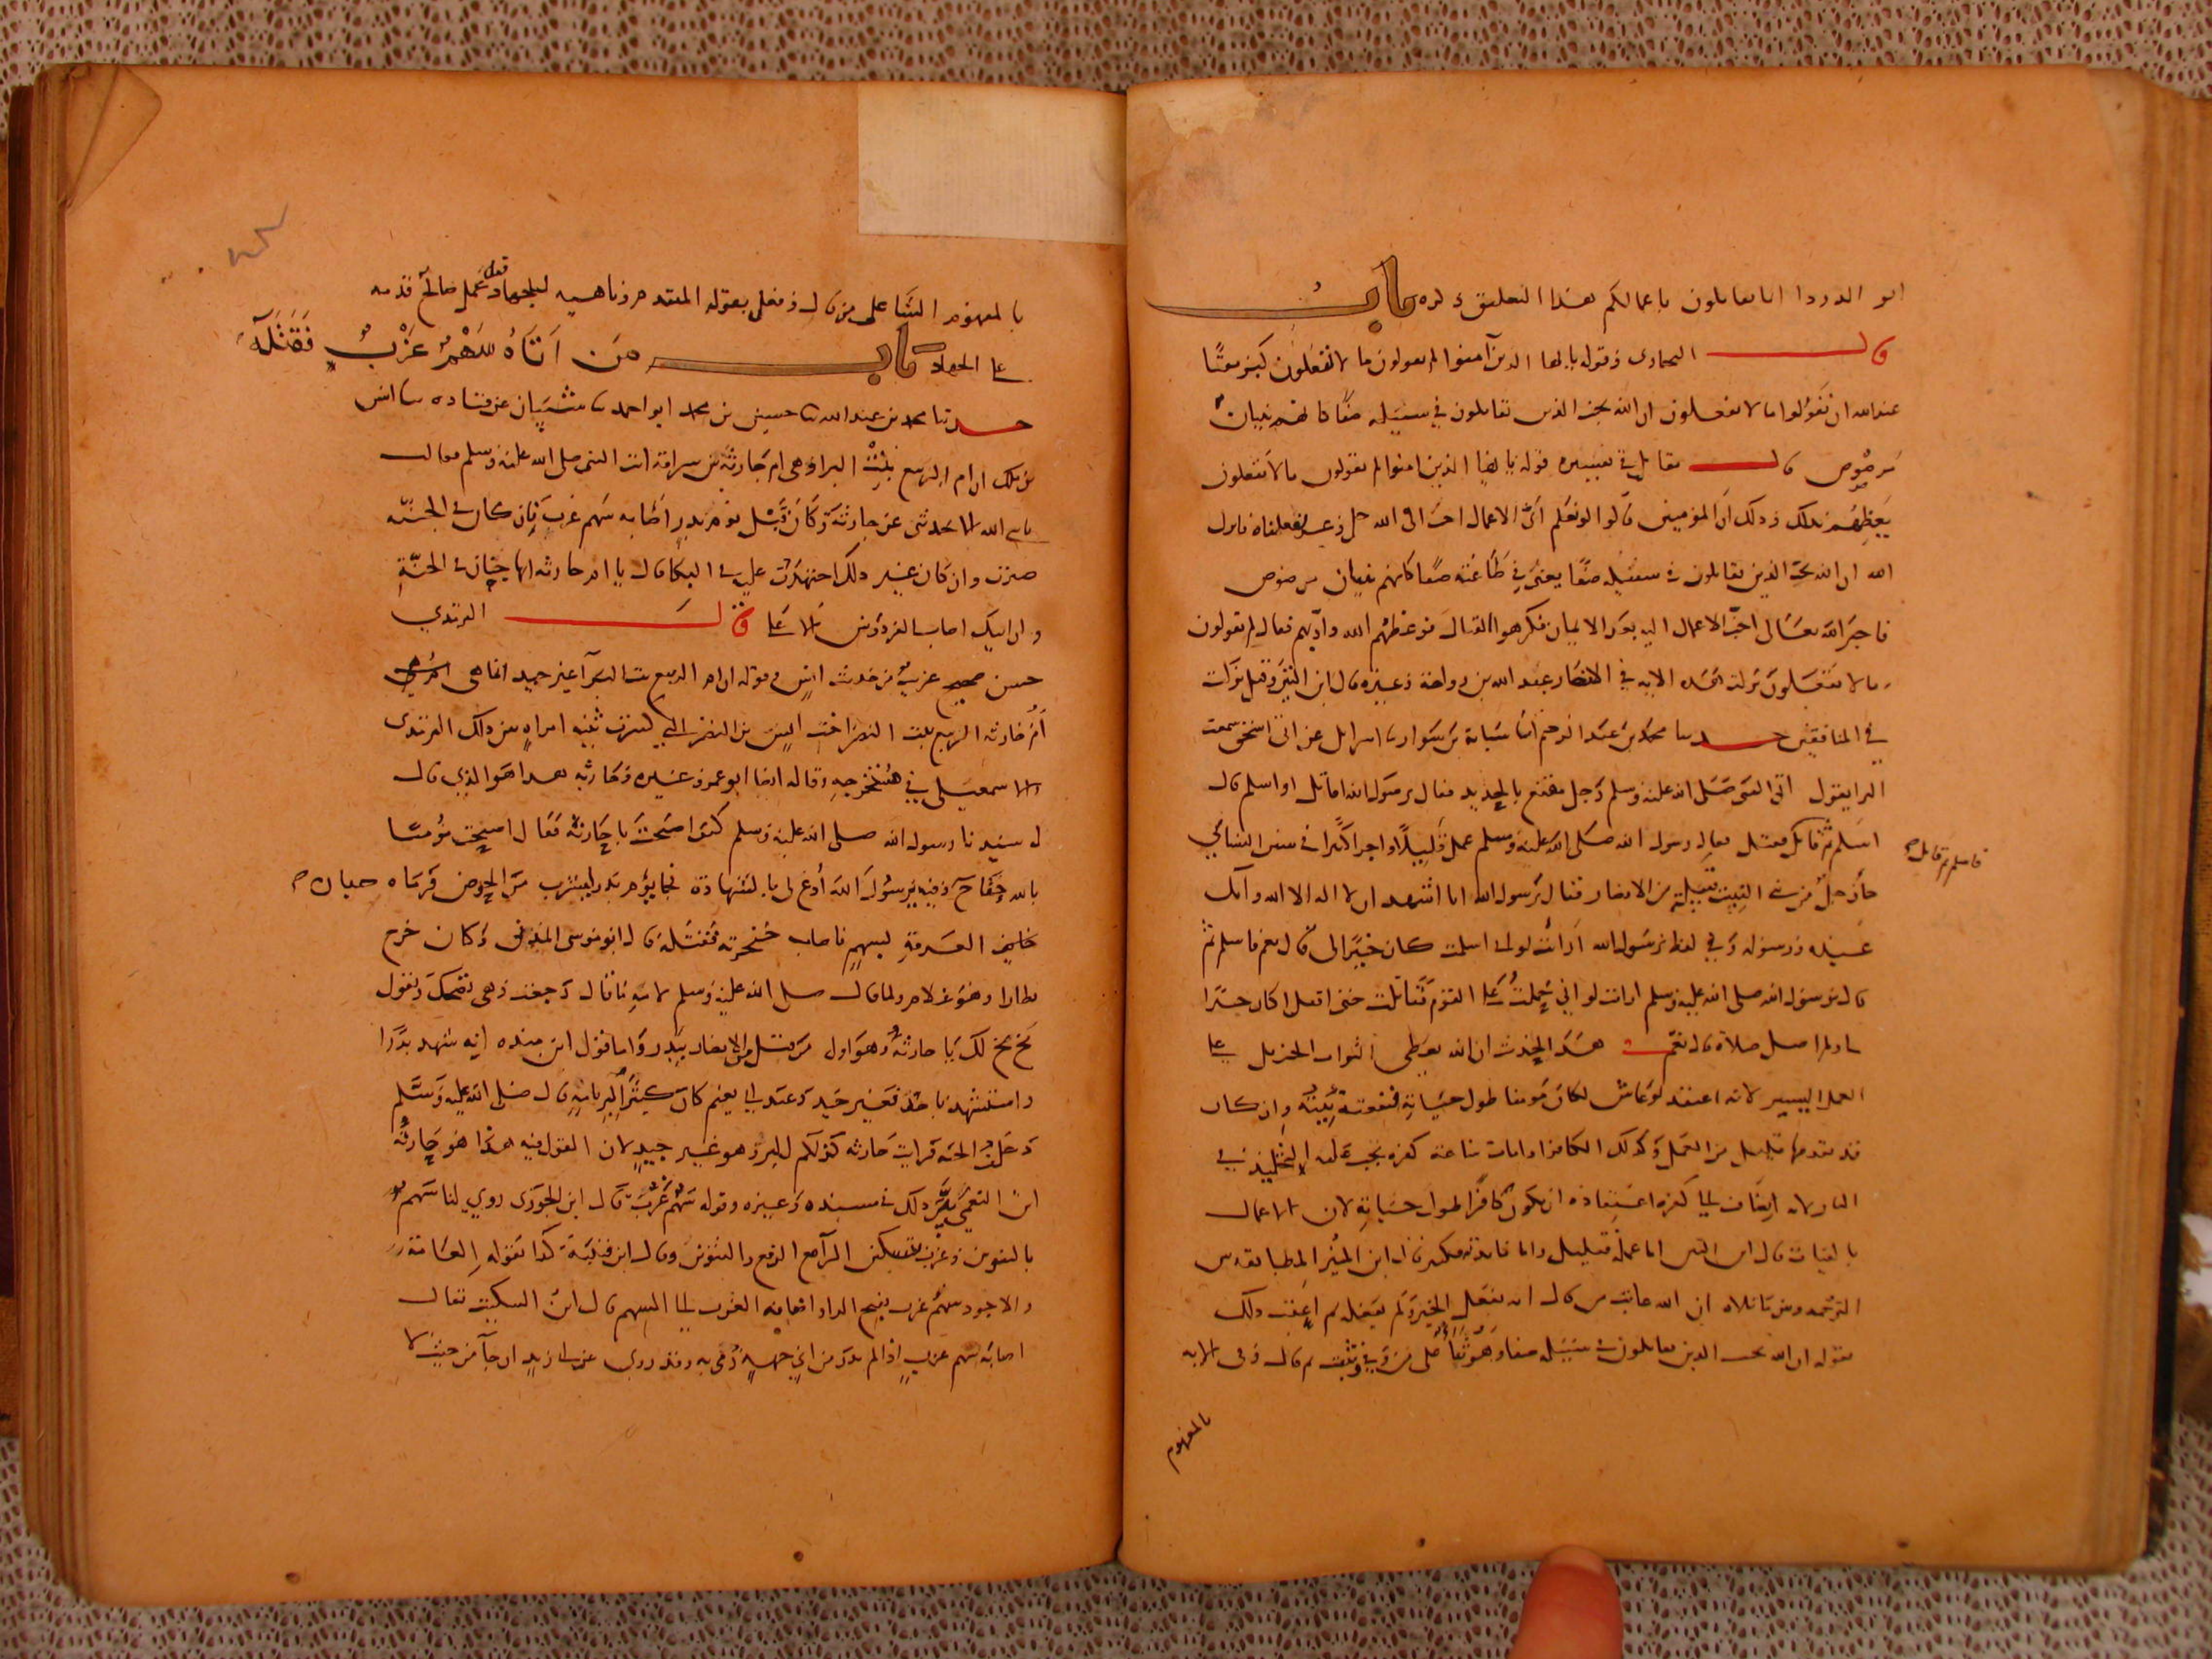 ابو الدردا انما تقاتلون باعمالكم هذا التعليق ذكره باب
قال البخاري وقوله يا ايها الذين آمنوا لم تقولون ما لا تفعلون كبر مقتا
عند الله ان تقولوا ما لا تفعلون ان الله يحب الذين تقاتلون في سبيله صفا كانهم بنيان
مرصوص قال مقاتل في تفسيره قوله يا ايها الذين امنوا لم تقولون ما لا تفعلون
يعظهم بذلك وذلك ان المؤمنين قالوا لو نعلم اي الاعمال احب الى الله جل وعز لفعلناه فانزل
الله ان الله يحب الذين يقاتلون في سبيله صفا يعني في طاعته صفا كانهم بنيان مرصوص
فاخبر الله تعالى احب الاعمال اليه بعد الايمان فكرهوا القتال فوعظهم الله وادبهم فقال لم تقولون
ما لا تفعلون نزلت هذه الاية في الانصار عبد الله بن رواحة وغيره قال ابن التين وقيل نزلت
في المنافقين حدثنا محمد بن عبد الرحيم انا شبابة بن سوار نا اسرائيل عن ابي اسحق سمعت
البرا يقول اتى النبي صلى الله عليه وسلم رجل مقنع بالحديد فقال يرسول الله اقاتل او اسلم قال
اسلم ثم قاتل فقتل فقال رسول الله صلى الله عليه وسلم عمل قليلا واجر كثيرا في سنن النسائي
فاسلم ثم قاتل صح
جا رجل من بني النبيت قبيلة من الانصار فقال يرسول الله انا اشهد ان لا اله الا الله وانك
عبده ورسوله وفي لفظ يرسول الله ارأيت لو اني اسلمت كان خيرا لي قال نعم فاسلم ثم
قال يرسول الله صلى الله عليه وسلم ارايت لو اني حملت على القوم فقاتلت حتى اقتل اكان خيرا
لي ولم اصل صلاة قال نعم هذا الحديث ان الله يعطي الثواب الجزيل على
العمل اليسير لانه اعتقد لو عاش لكان مومنا طول حياته فنفعته نيته وان كان
قد تقدمها قليل من العمل وكذلك الكافر اذا مات ساعة كفره يجب عليه التخليد في
النار لانه انضاف الى كفره اعتقاده ان يكون كافرا طول حياته لان الاعمال
بالنيات قال ابن التين اما عمله قليل واما فائدته فكثير قال ابن المنير المطابقة بين
الترجمة وبين ما تلاه ان الله عاتب من قال انه يفعل الخير ولم يفعله ثم اعقب ذلك
بقوله ان الله يحب الذين يقاتلون في سبيله صفا وهو ثنا على من وفى وثبت ثم قال وفي الاية
بالمفهوم
بالمفهوم الثنا على من قال وفعل بقوله المتقدم وتاهبه للجهاد فعل عمل صالح قدمه
على الجهاد باب من اتاه سهم غرب فقتله
حدثنا محمد بن عبد الله نا حسين بن محمد ابو احمد نا شيبان عن قتادة نا انس
بن ملك ان ام الربيع بنت البرا وهي ام حارثة بن سراقة اتت النبي صلى الله عليه وسلم فقالت
يا نبي الله الا تحدثني عن حارثة وكان قتل يوم بدر اصابه سهم غرب فان كان في الجنة
صبرت وان كان غير ذلك اجتهدت عليه في البكا قال يا ام حارثة انها جنان في الجنة
وان ابنك اصاب الفردوس الاعلى قال الترمذي
حسن صحيح غريب من حديث انس وقوله ان ام الربيع بنت البرا غير جيد انما هي
ام حارثة الربيع بنت النضر اخت انس بن النضر التي كسرت ثنية امراة بين ذلك الترمذي
والاسمعيلي في مستخرجه وقاله ايضا ابو عمر وغيره وحارثة هذا هو الذي قال
له سيدنا رسول الله صلى الله عليه وسلم كيف اصبحت يا حارثة فقال اصبحت مؤمنا
بالله حقا وفيه يرسول الله ادع لي بالشهادة فجا يوم بدر ليشرب من الحوض فرماه حبان
بن العرقة بسهم فاصاب حنجرته فقتله قال ابو موسى المديني وكان خرج
نظارا وهو غلام ولما قال صلى الله عليه وسلم لامه ما قال رجعت وهي تضحك وتقول
بخ بخ لك يا حارثة وهو اول من قتل من الانصار ببدر واما قول ابن منده انه شهد بدرا
واستشهد باحد فغير جيد وعند ابي نعيم كان كثير البر بامه قال صلى الله عليه وسلم
دخلت الجنة فرايت حارثة كذلكم البر وهو غير جيد لان المقول فيه هذا هو حارثة
ابن النعمن بين ذلك في مسنده وغيره وقوله سهم غرب قال ابن الجوزي روي لنا سهم
بالتنوين وغرب بتسكين الرا مع الرفع والتنوين وقال ابن قتيبة كذا تقوله العامة
والاجود سهم غرب بفتح الرا واضافة الغرب الى السهم قال ابن السكيت يقال
اصابه سهم غرب اذا لم يدر من اي جهة رمي به وقد روى عن ابي زيد ان جا من حيث لا